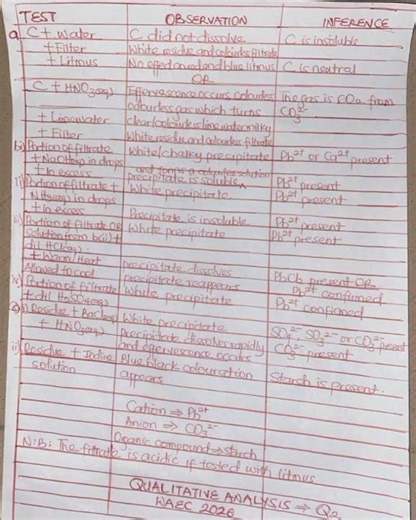 TEST OBSERVATION INFERENCE
a) C + water C did not dissolve C is insoluble
+ Filter White residue and colourless filtrate
+ Litmus No effect on red and blue litmus C is neutral
OR
C + HNO3(aq) Effervescence occurs colourless The gas is CO2 from
odourless gas which turns CO3²⁻
+ Limewater clear/colourless lime water milky
+ Filter White residue and colourless filtrate
b) Portion of filtrate White/chalky precipitate Pb²⁺ or Ca²⁺ present
+ NaOH(aq) in drops and forms a colourless solution
+ In excess precipitate is soluble ^ Pb²⁺ present
ii) Portion of filtrate + White precipitate Pb²⁺ present
NH3(aq) in drops
+ In excess Precipitate is insoluble Pb²⁺ present
iii) Portion of filtrate OR White precipitate Pb²⁺ present
solution from b(i) +
dil HCl(aq)
+ Warm/Heat Precipitate dissolves
Allowed to cool precipitate reappears PbCl2 present OR
Pb²⁺ confirmed
iv) Portion of filtrate White precipitate Pb²⁺ confirmed
+ dil H2SO4(aq)
Residue + BaCl2(aq) White precipitate SO4²⁻ SO3²⁻ or CO3²⁻ present
+ HNO3(aq) Precipitate dissolves rapidly CO3²⁻ present
and effervescence occurs
ii) Residue + Iodine Blue black colouration
solution appears Starch is present.
Cation ⇒ Pb²⁺
Anion ⇒ CO3²⁻
Organic compound ⇒ starch
N:B: The filtrate is acidic if tested with litmus
QUALITATIVE ANALYSIS ⇒ Q2
WAEC 2026